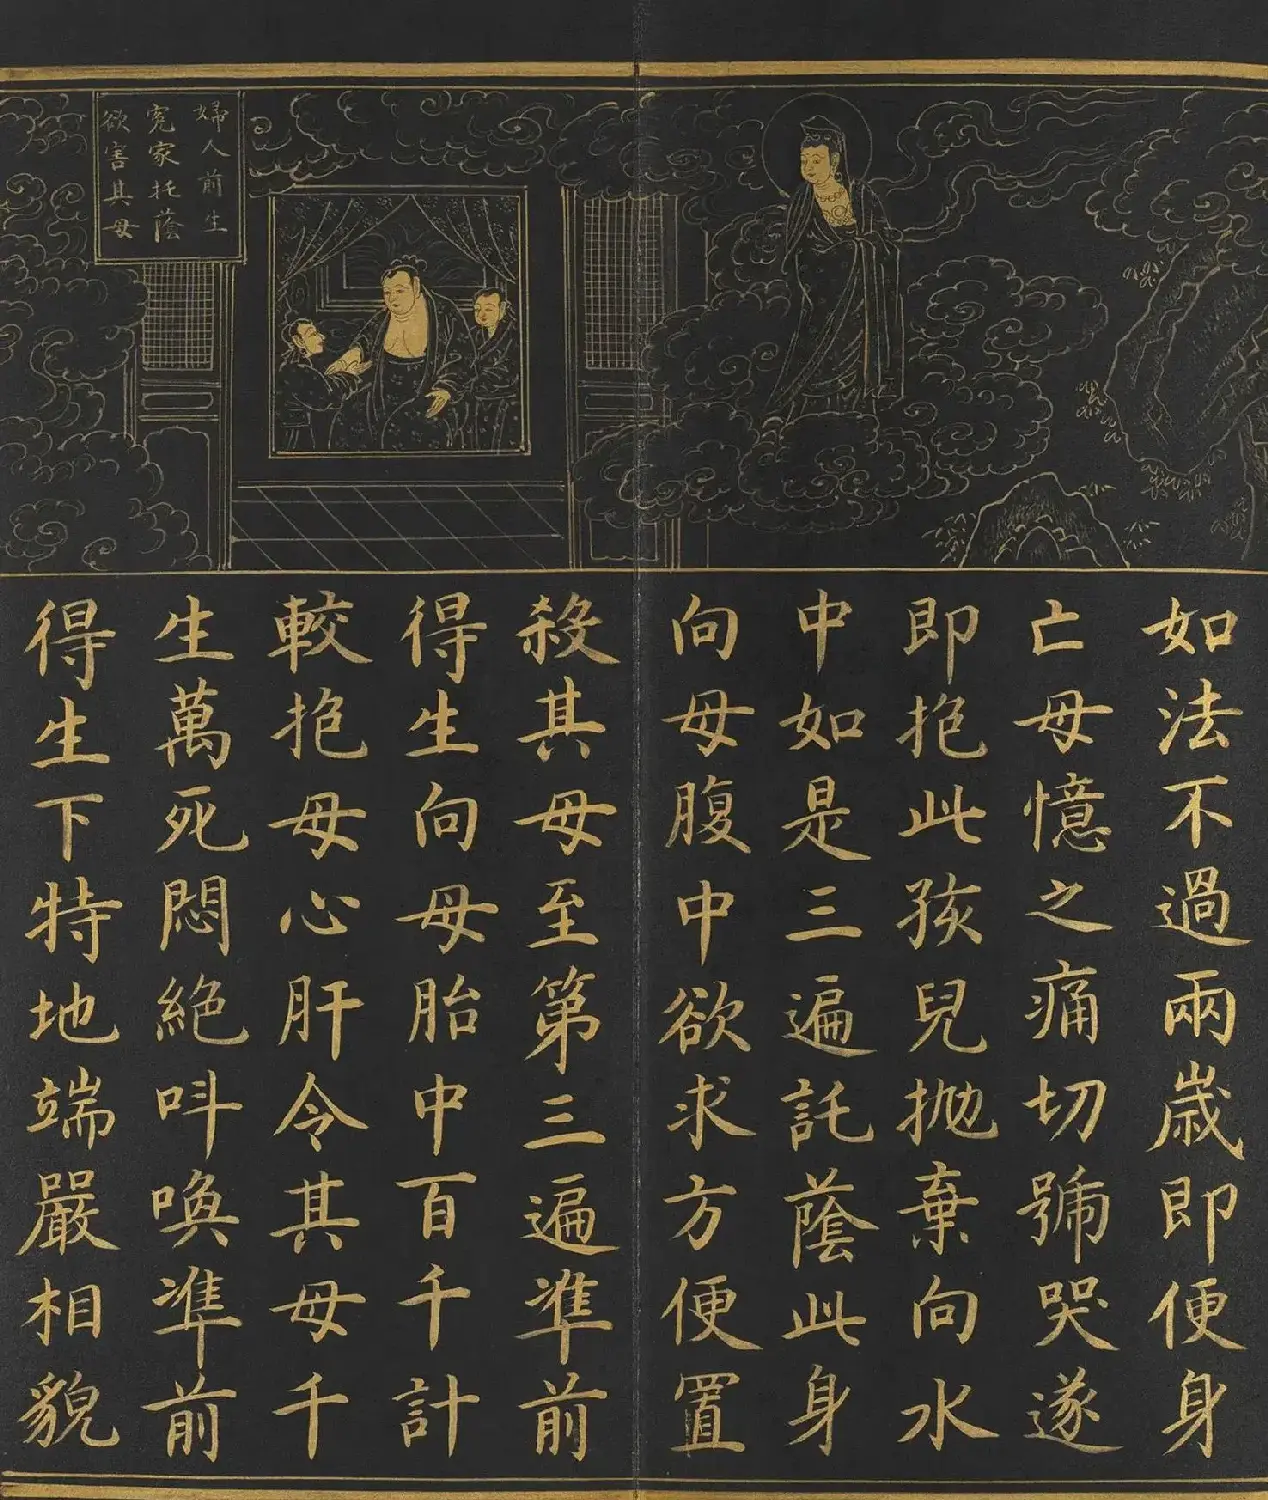 婦人前生
寃家托蔭
欲害其母
如法不過兩歲即便身
亡母憶之痛切號哭遂
即抱此孩兒抛棄向水
中如是三遍託蔭此身
向母腹中欲求方便置
殺其母至第三遍準前
得生向母胎中百千計
較抱母心肝令其母千
生萬死悶絕呌喚準前
得生下特地端嚴相貌